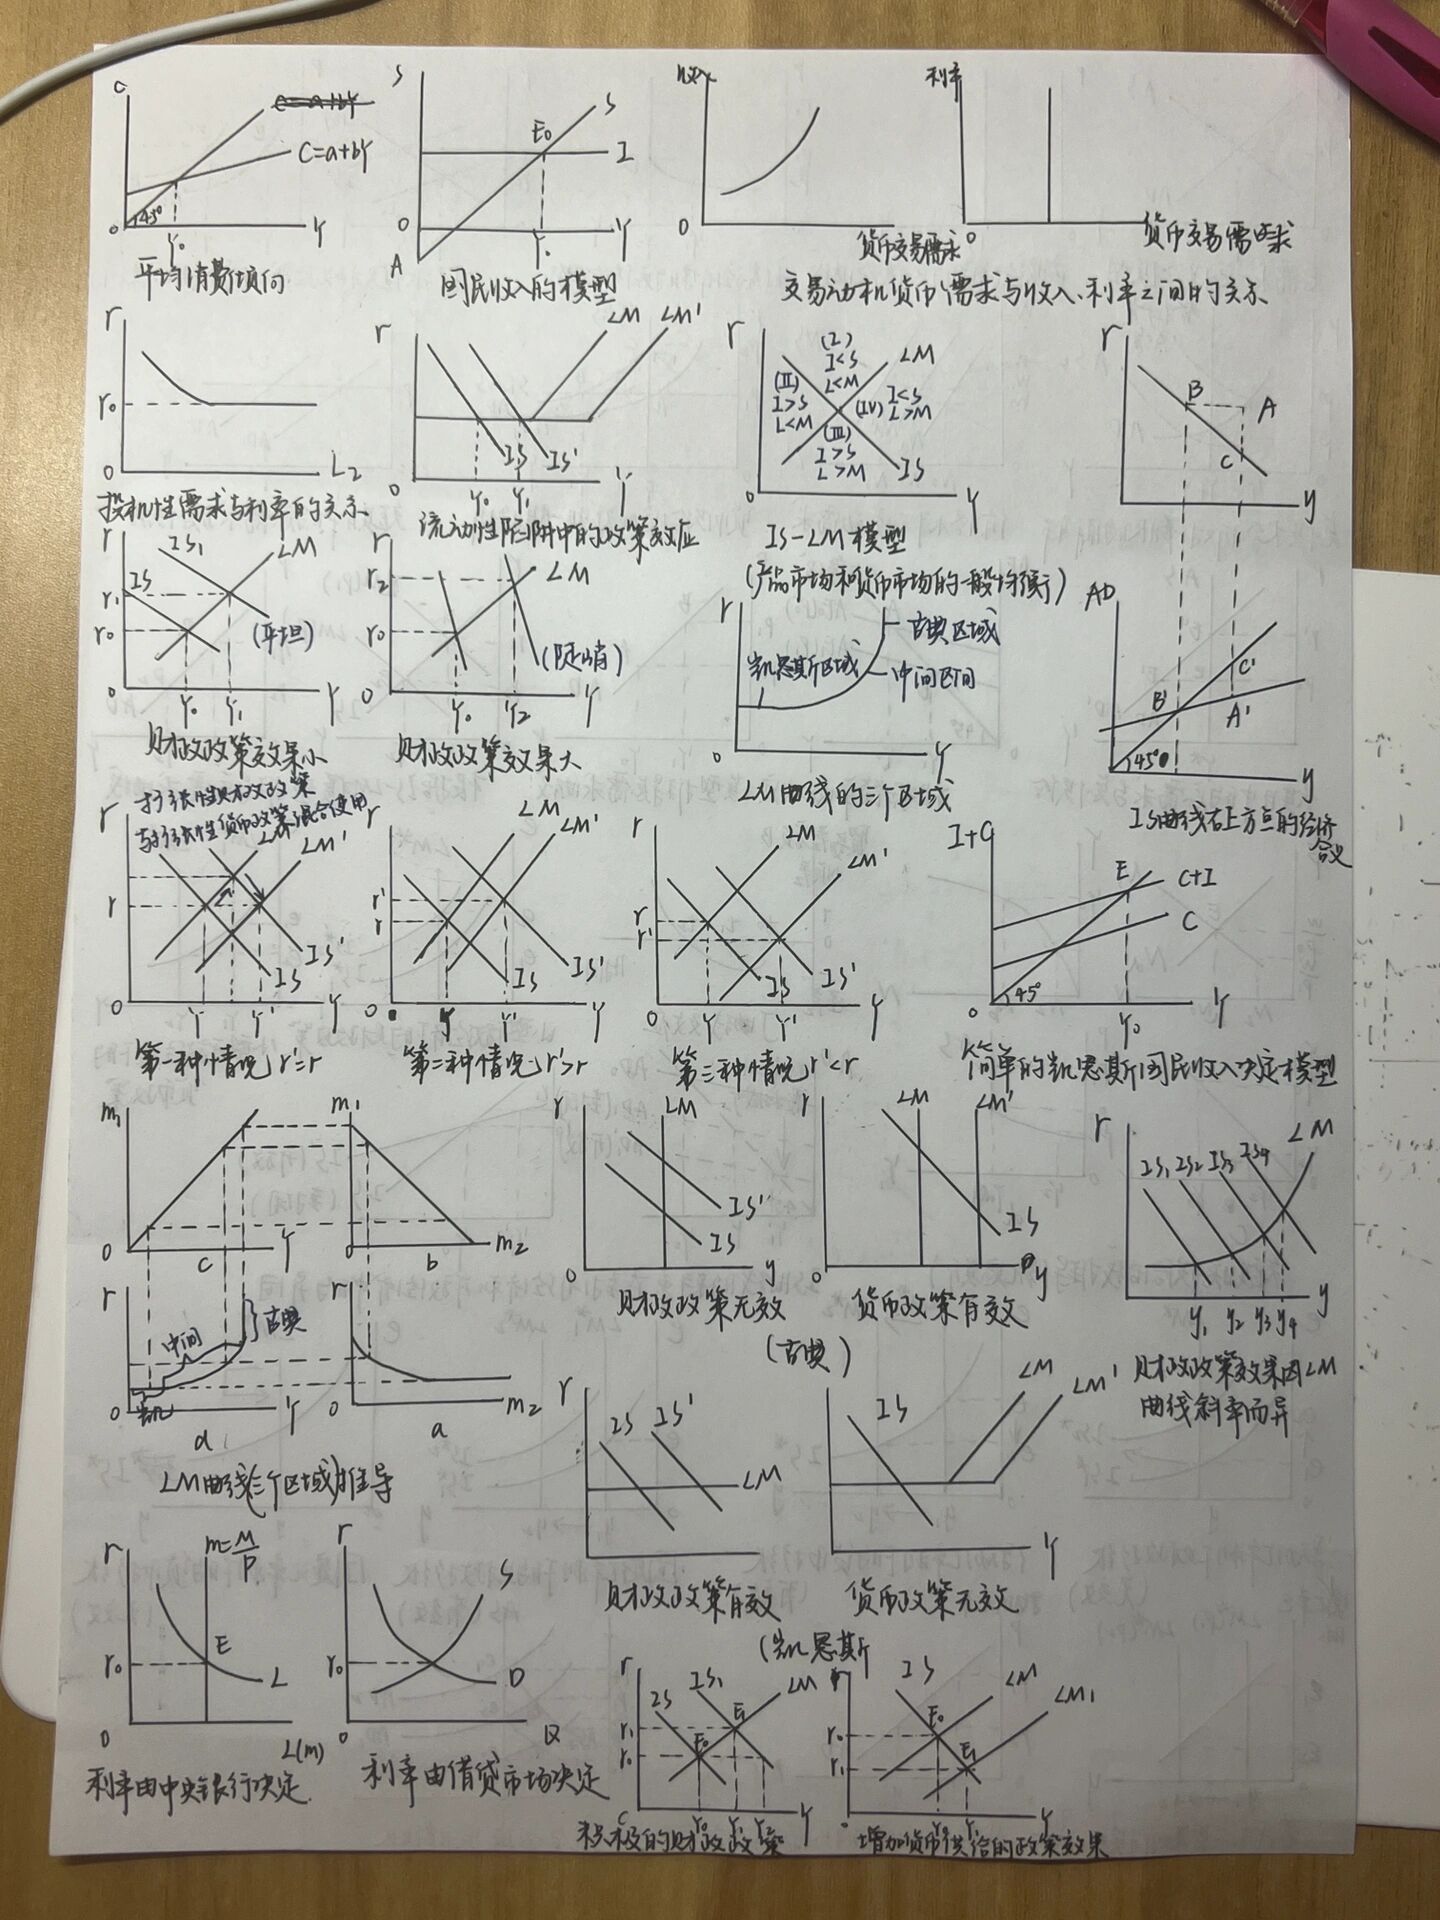 C
C=a+bY
C=a+bY
45°
0
Y₀
Y
平均消费倾向
S
S
E₀
I
0
Y₀
Y
A
国民收入的模型
收入
0
货币交易需求
利率
0
货币交易需求
交易动机货币需求与收入、利率之间的关系
r
r₀
0
L₂
投机性需求与利率的关系
r
LM
LM'
IS
IS'
0
Y₀
Y₁
Y
流动性陷阱中的政策效应
r
(I)
I<S
L<M
LM
(II)
I>S
L<M
(IV)
I<S
L>M
(III)
I>S
L>M
IS
0
Y
IS-LM模型
(产品市场和货币市场的一般均衡)
r
B
A
C
y
r
IS₁
LM
IS
r₁
r₀
(平坦)
0
Y₀
Y₁
Y
财政政策效果小
r
r₂
LM
r₀
(陡峭)
0
Y₀
Y₂
Y
财政政策效果大
r
古典区域
凯恩斯区域
中间区间
0
Y
LM曲线的三个区域
AD
C'
B'
A'
45°
y
IS曲线右上方点的经济
含义
扩张性财政政策
与扩张性货币政策混合使用
r
LM
LM'
r
IS'
IS
0
Y
Y'
Y
第一种情况r'=r
r
LM
LM'
r'
r
IS
IS'
0
Y
Y'
Y
第二种情况r'>r
r
LM
LM'
r
r'
IS
IS'
0
Y
Y'
Y
第三种情况r'<r
I+C
E
C+I
C
45°
0
Y₀
Y
简单的凯恩斯国民收入决定模型
m₁
0
c
Y
m₁
0
b
m₂
r
古典
中间
凯
0
Y
d
r
0
a
m₂
LM曲线(三个区域)推导
r
LM
IS'
IS
0
y
财政政策无效
r
LM
LM'
IS
0
y
货币政策有效
(古典)
r
IS₁
IS₂
IS₃
IS₄
LM
y₁
y₂
y₃
y₄
y
财政政策效果因LM
曲线斜率而异
r
IS
IS'
LM
财政政策有效
IS
LM
LM'
Y
货币政策无效
(凯恩斯
r
m=M/P
E
r₀
L
0
L(m)
利率由中央银行决定
r
S
r₀
D
0
Q
利率由借贷市场决定
r
IS₁
IS
LM
E₁
r₁
r₀
E₀
Y₀
Y₁
Y₂
Y
积极的财政政策
IS
LM
LM₁
E₀
r₀
r₁
E₁
Y₀
Y₁
Y
增加货币供给的政策效果